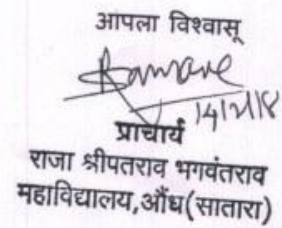 आपला विश्वासू
प्राचार्य
राजा श्रीपतराव भगवंतराव
महाविद्यालय,औंध(सातारा)